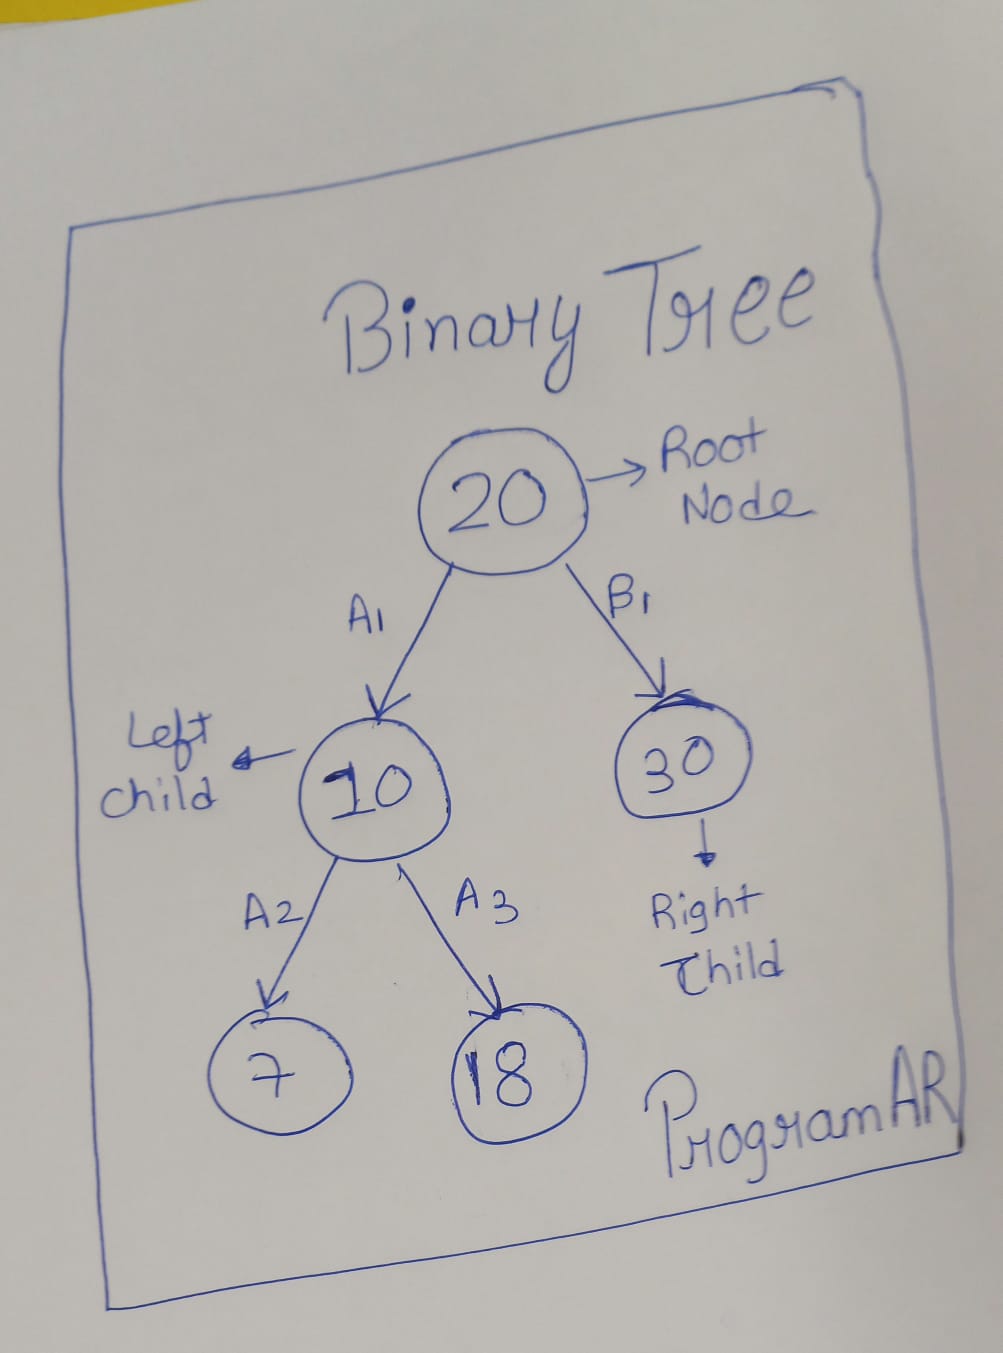 Binary Tree
20
Root
Node
A1
B1
Left
child
10
30
A2
A3
Right
Child
7
18
ProgramAR